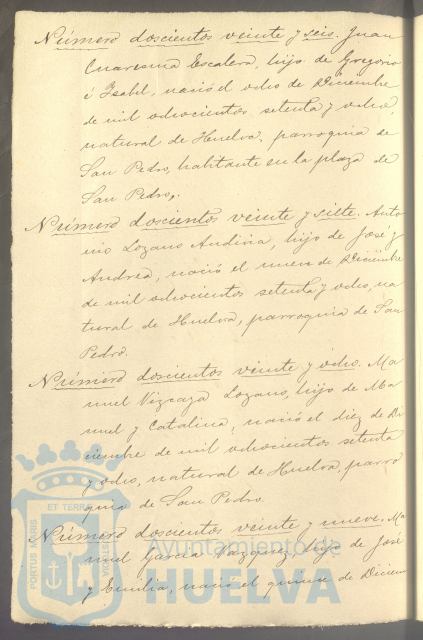 Número doscientos veinte y seis. Juan
Cuaresma Escalera, hijo de Gregorio
é Isabel, nació el ocho de Diciembre
de mil ochocientos setenta y ocho,
natural de Huelva, parroquia de
San Pedro, habitante en la plaza de
San Pedro,.
Número doscientos veinte y siete. Anto
nio Lozano Andivia, hijo de José y
Andrea, nació el nueve de Diciembre
de mil ochocientos setenta y ocho, na
tural de Huelva, parroquia de San
Pedro.
Número doscientos veinte y ocho. Ma
nuel Vizcaya Lozano, hijo de Ma
nuel y Catalina, nació el diez de Di
ciembre de mil ochocientos setenta
y ocho, natural de Huelva, parro
quia de San Pedro.
Número doscientos veinte y nueve. Ma
nuel Garcia Vazquez, hijo de José
y Emilia, nació el quince de Diciem
PORTUS MARIS ET TERRÆ CUSTODIA
Ayuntamiento de
HUELVA